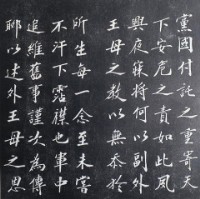 黨國付託之重寄天
下安危之責如此夙
興夜寐將何以副外
王母之教以無忝於
所生每一念至未嘗
不汗下霑襟也軍中
追維舊事謹次為傳
聊以述外王母之恩